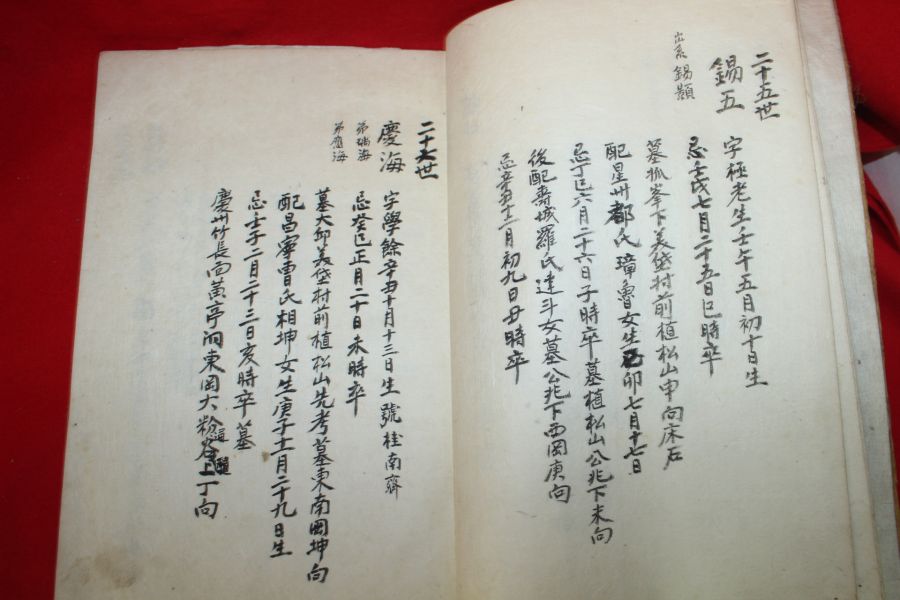 二十五世
錫五
出系 錫類
字極老生壬午五月初十日生
忌壬戌七月二十五日巳時卒
墓狐峯下美岱村前植松山申向床石
配星州都氏 璋魯女生己卯七月十七日
忌丁巳六月二十六日子時卒墓植松山公兆下未向
後配壽城羅氏達斗女墓公兆下西岡庚向
忌辛丑十二月初九日丑時卒
二十六世
慶海
弟瑞海
弟應海
字學餘辛丑十月十三日生 號桂南齋
忌癸巳正月二十日未時卒
墓大邱美岱村前植松山先考墓東南岡坤向
配昌寧曺氏相坤女生庚子十一月二十九日生
忌壬子二月二十三日亥時卒 墓
慶州竹長面黃亭洞東岡大粉谷上丁向